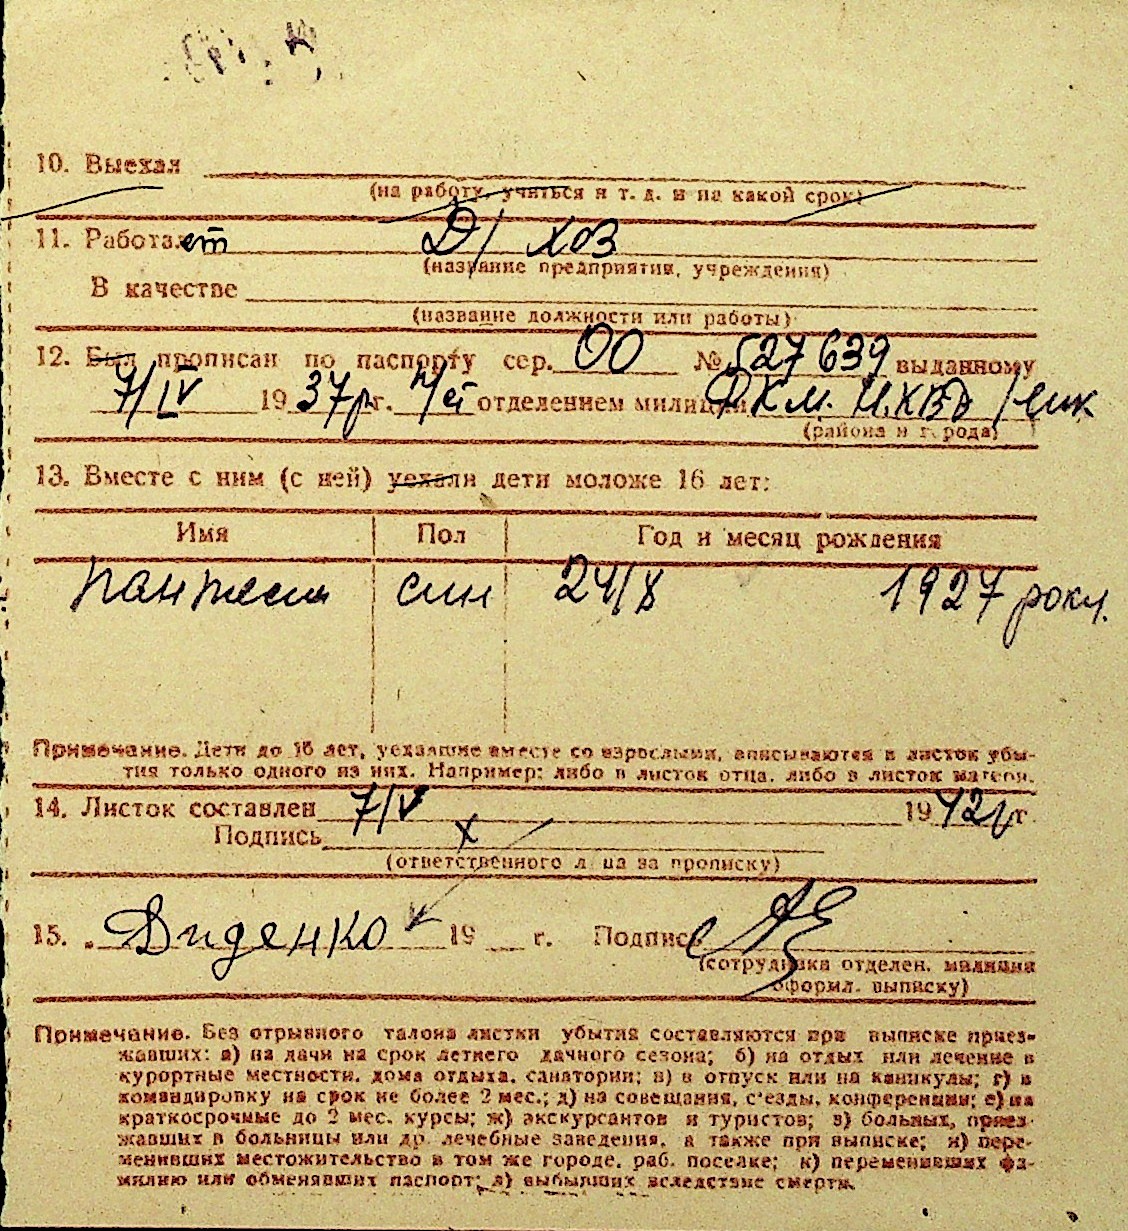 10. Выехал
(на работу, учиться и т. д. и на какой срок)
11. Работает Д/хоз
(название предприятия, учреждения)
В качестве
(название должности или работы)
12. Был прописан по паспорту сер. ОО № 527639 выданному
7/IV 1937р г. 7/ей отделением милиции Р.К.М. Н.КВД
(района и города)
13. Вместе с ним (с ней) уехали дети моложе 16 лет:
Имя Пол Год и месяц рождения
син 24/X 1927 рок.
Примечание. Дети до 16 лет, уехавшие вместе со взрослыми, вписываются в листок убы-
тия только одного из них. Например: либо в листок отца, либо в листок матери.
14. Листок составлен 7/V 1942р г
Подпись х
(ответственного лица за прописку)
15. Диденко 19 г. Подпись
(сотрудника отделен. милиции
оформл. выписку)
Примечание. Без отрывного талона листки убытия составляются при выписке приез-
жавших: а) на дачи на срок летнего дачного сезона; б) на отдых или лечение в
курортные местности, дома отдыха, санатории; в) в отпуск или на каникулы; г) в
командировку на срок не более 2 мес.; д) на совещания, с'езды, конференции; е) на
краткосрочные до 2 мес. курсы; ж) экскурсантов и туристов; з) больных, приез-
жавших в больницы или др. лечебные заведения, а также при выписке; и) пере-
менивших местожительство в том же городе, раб. поселке; к) переменивших фа-
милию или обменявших паспорт; л) выбывших вследствие смерти.